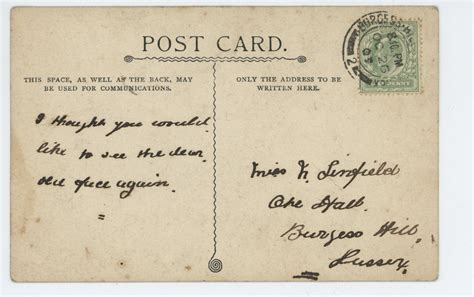 POST CARD.
THIS SPACE, AS WELL AS THE BACK, MAY
BE USED FOR COMMUNICATIONS.
ONLY THE ADDRESS TO BE
WRITTEN HERE.
I thought you would
like to see the dear
old face again.
Miss N. Linfield
Oke Hall
Burgess Hill
Sussex
BURGESS HILL
OC 25